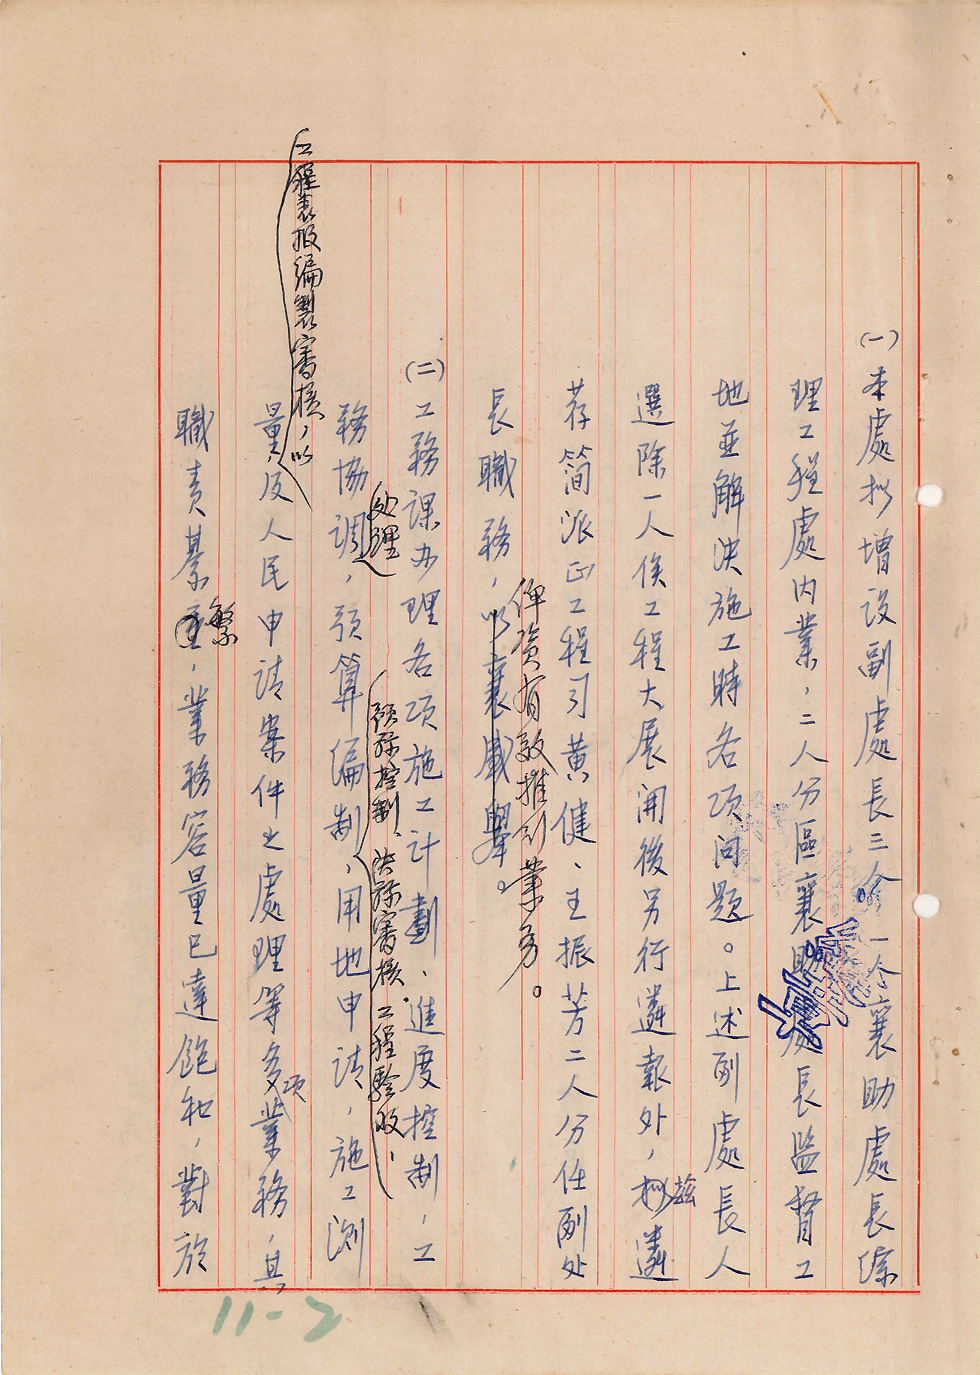 (一)本處擬增設副處長三人，一人襄助處長綜
理工程處內業，二人分區襄助處長監督工
地並解決施工時各項问題。上述副處長人
選除一人俟工程大展開後另行遴報外，擬茲遴
荐簡派正工程司黃健、王振芳二人分任副处
長職務，以襄盛舉。
俾資有效推行業务。
(二)工務課办理各項施工计劃、進度控制，工
預算控制、決算審核、工程驗收，
处理
務協調，預算編制，用地申請，施工測
工程表报編製審核，以
量及人民申請案件之處理等多項業務，其
職責綦重繁，業務容量已達飽和，對於
11-2